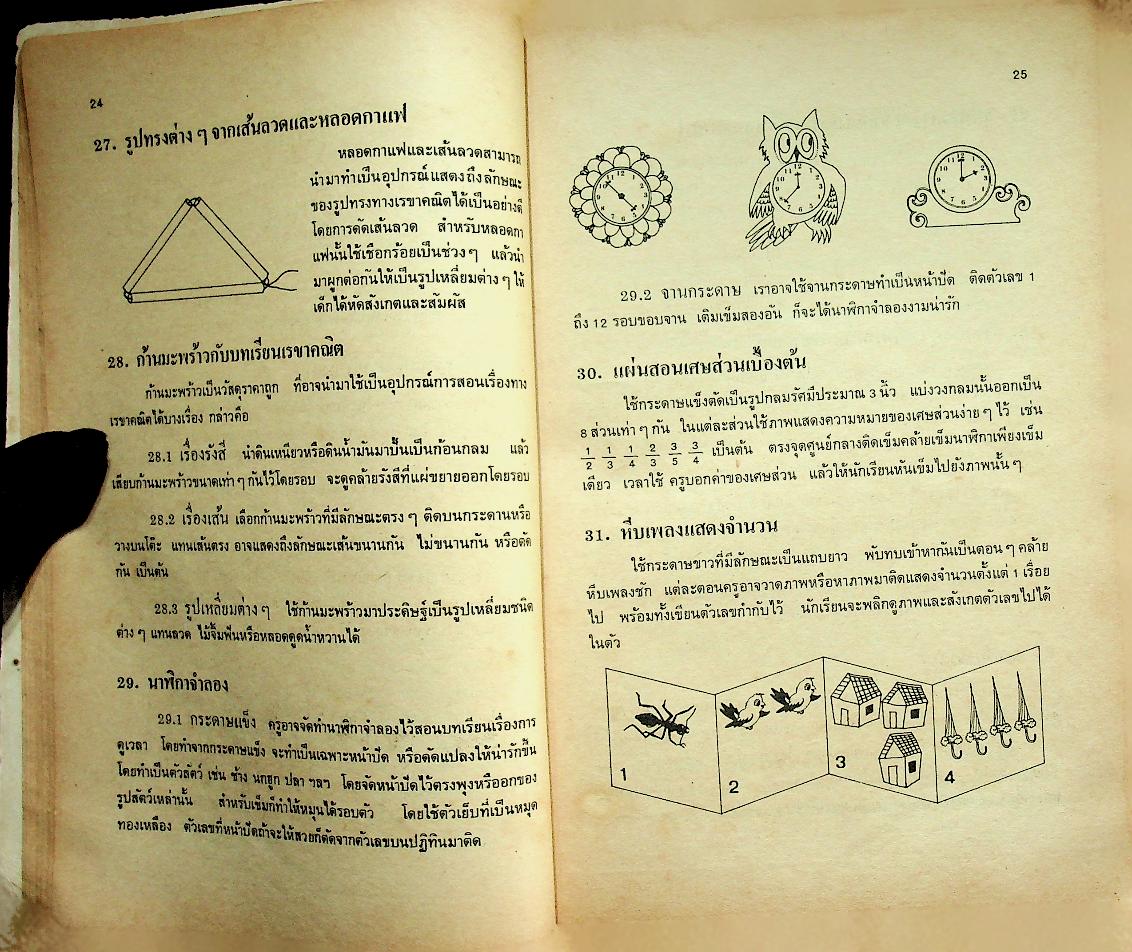 24
27. รูปทรงต่าง ๆ จากเส้นลวดและหลอดกาแฟ
หลอดกาแฟและเส้นลวดสามารถ
นำมาทำเป็นอุปกรณ์แสดงถึงลักษณะ
ของรูปทรงทางเรขาคณิตได้เป็นอย่างดี
โดยการดัดเส้นลวด สำหรับหลอดกา
แฟนั้นใช้เชือกร้อยเป็นช่วง ๆ แล้วนำ
มาผูกต่อกันให้เป็นรูปเหลี่ยมต่าง ๆ ให้
เด็กได้หัดสังเกตและสัมผัส
28. ก้านมะพร้าวกับบทเรียนเรขาคณิต
ก้านมะพร้าวเป็นวัสดุราคาถูก ที่อาจนำมาใช้เป็นอุปกรณ์การสอนเรื่องทาง
เรขาคณิตได้บางเรื่อง กล่าวคือ
28.1 เรื่องรังสี นำดินเหนียวหรือดินน้ำมันมาปั้นเป็นก้อนกลม แล้ว
เสียบก้านมะพร้าวขนาดเท่า ๆ กันไว้โดยรอบ จะดูคล้ายรังสีที่แผ่ขยายออกโดยรอบ
28.2 เรื่องเส้น เลือกก้านมะพร้าวที่มีลักษณะตรง ๆ ติดบนกระดานหรือ
วางบนโต๊ะ แทนเส้นตรง อาจแสดงถึงลักษณะเส้นขนานกัน ไม่ขนานกัน หรือตัด
กัน เป็นต้น
28.3 รูปเหลี่ยมต่าง ๆ ใช้ก้านมะพร้าวมาประดิษฐ์เป็นรูปเหลี่ยมชนิด
ต่าง ๆ แทนลวด ไม้จิ้มฟันหรือหลอดดูดน้ำหวานได้
29. นาฬิกาจำลอง
29.1 กระดาษแข็ง ครูอาจจัดทำนาฬิกาจำลองไว้สอนบทเรียนเรื่องการ
ดูเวลา โดยทำจากกระดาษแข็ง จะทำเป็นเฉพาะหน้าปัด หรือดัดแปลงให้น่ารักขึ้น
โดยทำเป็นตัวสัตว์ เช่น ช้าง นกฮูก ปลา ฯลฯ โดยจัดหน้าปัดไว้ตรงพุงหรืออกของ
รูปสัตว์เหล่านั้น สำหรับเข็มก็ทำให้หมุนได้รอบตัว โดยใช้ตัวเย็บที่เป็นหมุด
ทองเหลือง ตัวเลขที่หน้าปัดถ้าจะให้สวยก็ตัดจากตัวเลขบนปฏิทินมาติด
25
29.2 จานกระดาษ เราอาจใช้จานกระดาษทำเป็นหน้าปัด ติดตัวเลข 1
ถึง 12 รอบขอบจาน เติมเข็มสองอัน ก็จะได้นาฬิกาจำลองงามน่ารัก
30. แผ่นสอนเศษส่วนเบื้องต้น
ใช้กระดาษแข็งตัดเป็นรูปกลมรัศมีประมาณ 3 นิ้ว แบ่งวงกลมนั้นออกเป็น
8 ส่วนเท่า ๆ กัน ในแต่ละส่วนใช้ภาพแสดงความหมายของเศษส่วนง่าย ๆ ไว้ เช่น
1/2 1/3 1/4 2/3 3/5 3/4 เป็นต้น ตรงจุดศูนย์กลางติดเข็มคล้ายเข็มนาฬิกาเพียงเข็ม
เดียว เวลาใช้ ครูบอกค่าของเศษส่วน แล้วให้นักเรียนหันเข็มไปยังภาพนั้น ๆ
31. หีบเพลงแสดงจำนวน
ใช้กระดาษขาวที่มีลักษณะเป็นแถบยาว พับทบเข้าหากันเป็นตอน ๆ คล้าย
หีบเพลงชัก แต่ละตอนครูอาจวาดภาพหรือหาภาพมาติดแสดงจำนวนตั้งแต่ 1 เรื่อย
ไป พร้อมทั้งเขียนตัวเลขกำกับไว้ นักเรียนจะพลิกดูภาพและสังเกตตัวเลขไปได้
ในตัว
1
2
3
4